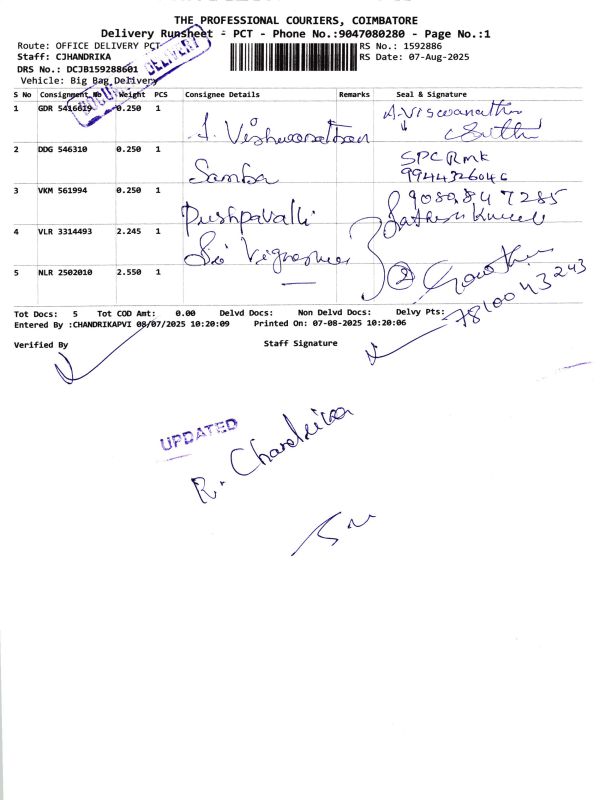 THE PROFESSIONAL COURIERS, COIMBATORE
Delivery Runsheet - PCT - Phone No.:9047080280 - Page No.:1
Route: OFFICE DELIVERY PCT
RS No.: 1592886
Staff: CJHANDRIKA
RS Date: 07-Aug-2025
DRS No.: DCJB159288601
Vehicle: Big Bag Delivery
DELIVERY
S No Consignment No Weight PCS Consignee Details Remarks Seal & Signature
1 GDR 5416619 0.250 1 A.Viswanathan
2 DDG 546310 0.250 1 Samba SPC Rmk
9944326046
3 VKM 561994 0.250 1 Pushpavalli 9080847285
4 VLR 3314493 2.245 1 Sri Vignesh
5 NLR 2502010 2.550 1 2
7810043243
Tot Docs: 5 Tot COD Amt: 0.00 Delvd Docs: Non Delvd Docs: Delvy Pts:
Entered By :CHANDRIKAPVI 08/07/2025 10:20:09 Printed On: 07-08-2025 10:20:06
Verified By Staff Signature
UPDATED
R. Chandrika